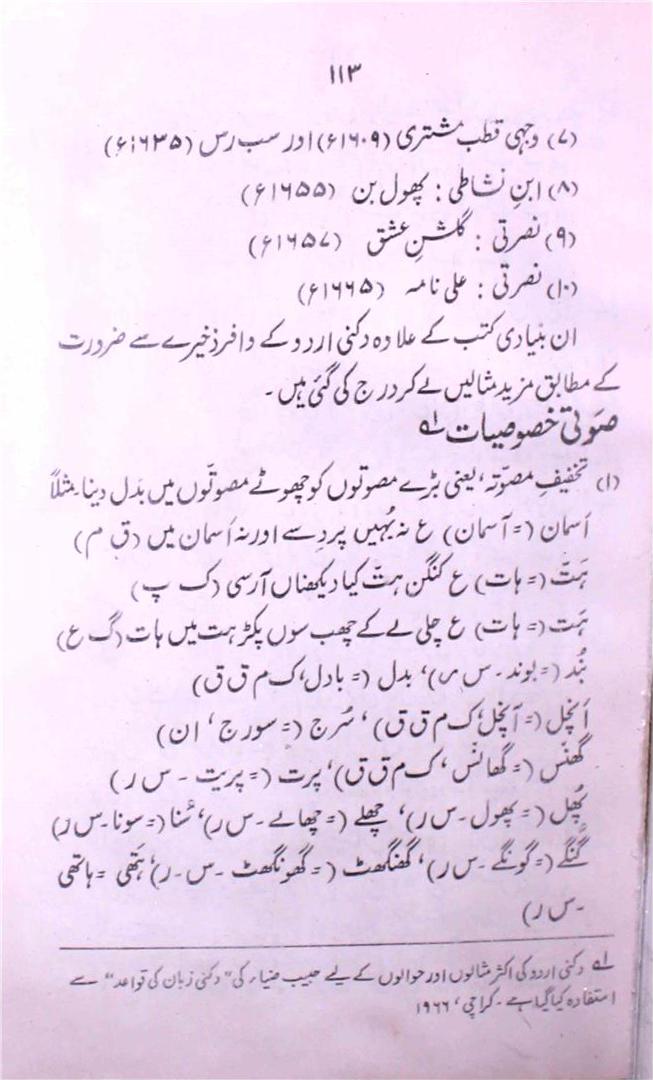 ۱۱۳
(۷) وجہی قطب مشتری (۱۶۰۹ء) اور سب رس (۱۶۳۵ء)
(۸) ابنِ نشاطی : پھول بن (۱۶۵۵ء)
(۹) نصرتی : گلشنِ عشق (۱۶۵۷ء)
(۱۰) نصرتی : علی نامہ (۱۶۶۵ء)
ان بنیادی کتب کے علاوہ دکنی اردو کے وافر ذخیرے سے ضرورت
کے مطابق مزید مثالیں لے کر درج کی گئی ہیں ۔
صَوتی خصوصیات ؎۱
(۱) تخفیفِ مصوّتہ، یعنی بڑے مصوتوں کو چھوٹے مصوتّوں میں بدل دینا ۔ مثلاً
اَسمان (= آسمان) ع نہ بُہیں پر دِسے اور نہ اَسمان میں (ق م)
ہَتّ (= ہات) ع کنگن ہتّ کیا دیکھناں آرسی (ک پ)
ہَت (= ہات) ع چلی لے کے چھب سوں پکڑ ہت میں ہات (گ ع)
بُند (= بوند ۔ س ر)، بدل (= بادل، ک م ق ق)
اَنچل (= آنچل، ک م ق ق)، سُرج (= سورج، ان)
گھنَس (= گھانس، ک م ق ق)، پرت (= پریت ۔ س ر)
پُھل (= پھول ۔ س ر)، چھلے (= چھالے ۔ س ر)، سُنا (= سونا ۔ س ر)
گُنگے (= گونگے ۔ س ر)، گھنگھٹ (= گھونگھٹ ۔ س ۔ ر)، ہَتھی = ہاتھی
۔ س ر)
؎۱ دکنی اردو کی اکثر مثالوں اور حوالوں کے لیے حبیب ضیاء کی "دکنی زبان کی قواعد" سے
استفادہ کیا گیا ہے ۔ کراچی، ۱۹۶۶